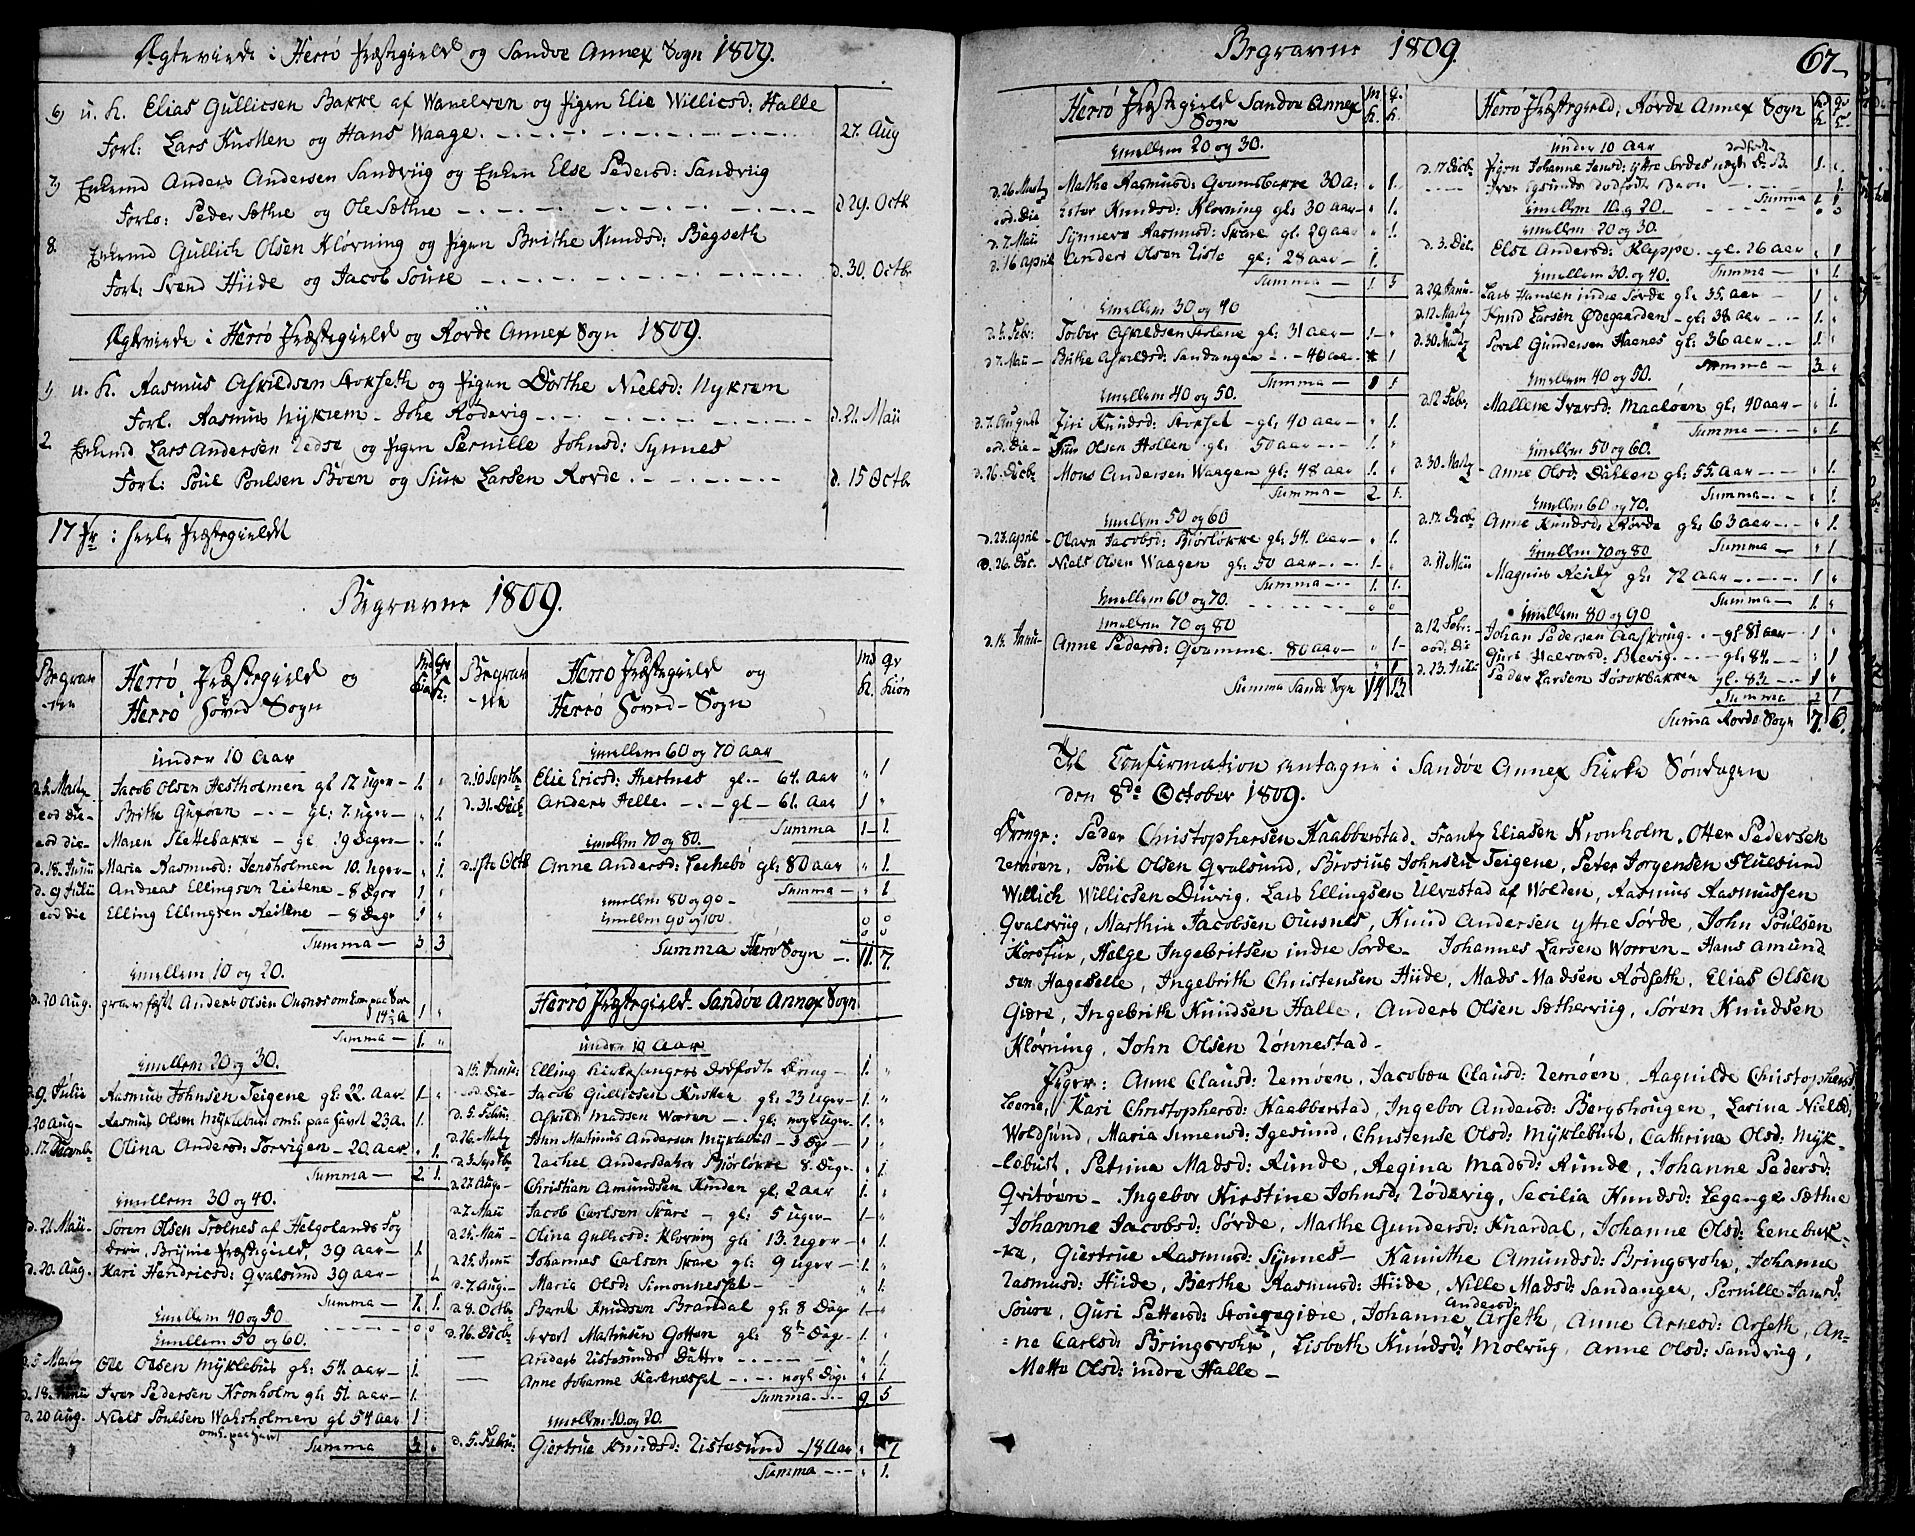 Ægteviede i Herrø Præstegield og Sandøe Annex Sogn 1809.
6) u. K. Elias Gullicsen Bakke af Wanelven og Pigen Elie Willicsd: Halle
Forl: Lars Knotten og Hans Waage. 27. Aug
7) Enkemd Anders Andersen Sandviig og Enken Else Pedersd: Sandviig
Forlo: Peder Sæthre og Ole Sæthre d. 29. Octb
8. Enkemd Gullich Olsen Kløvning og Pigen Brithe Knudsd: Bøgseth
Forl: Svend Hiide og Jacob Soure d. 30. Octbr
Ægteviede i Herrø Præstegield og Røvde Annex Sogn 1809.
1) u. K. Rasmus Askildsen Storseth og Pigen Dorthe Nielsd: Nykrem
Forl. Rasmus Nykrem - Johe Rødevig d. 21. Maii
2 Enkemd Lars Andersen og Pigen Pernille Johnsd: Synnes
Forl: Poul Poulsen Boen og Siur Larsen Rovde d. 15 Octb
17 Pr: heele Præstegieldt
Begravne 1809.
Begrav-ne Herrø Præstegield og
Herrø Hoved Sogn
under 10 Aar
Jacob Olsen Hestholmen gl 12 uger 1.
eod die Brithe Gurøen gl: 7. uger 1
eod die Maren Slettebakke gl 9 Dage 1.
d. 18. Junii Maria Rasmusd: Jensholmen 10. Uger 1
d. 9 Julii Andreas Ellingsen 8 Dger 1
eod die Elling Ellingsen 8 Dage 1
Summa 3 3
imellem 10 og 20.
d. 20 Aug. Anders Olsen
14½ A 1
Summa 1.
imellem 20 og 30.
d. 9. Julii Rasmus Johnsen Teigene gl: 22. Aar. 1.
d. 20 Aug Rasmus Olsen Myklebust omk: paa havet 23 A. 1.
d. 17. Olina Andersd: Torvigen - 20 Aar 1.
Summa 2 1.
imellem 30 og 40.
d. 21. Maii Søren Olsen af Helgolands Fog
derie, Præstegield, 39 Aar 1.
d. 20. Aug. Kari Hendricsd: Qvalsund 39 Aar
Summa 1. 1.
imellem 40 og 50 0 0
imellem 50 og 60.
d. 5 Marty Ole Olsen Myklebust gl: 54. Aar 1.
d. 18. Junii Iver Pedersen Kronholm gl: 51. Aar 1.
d. 20 Aug. Niels Poulsen Waksholmen gl 54 Aar 1
omk. paa havet Summa 3
Begrav-ne Herrø Præstegield og
Herrø Hoved-Sogn
imellem 60 og 70 Aar
d. 10 Septb Elie Ericsd: gl. 64. Aar 1
d. 31. Decb Anders Helle gl 61. Aar 1
Summa 1 1.
imellem 70 og 80.
d. 1ste Octb Anne Andersd: Leekebø gl: 80 Aar 1
Summa 1
imellem 80 og 90 0 0
imellem 90 og 100. 0 0
Summa Herrø Sogn 11. 7.
Herrø Præstegield. Sandøe Annex Sogn
under 10 Aar
d. 15. Janu: Elling Kirkesangers dødfødte Dreng 1.
eod Die Jacob Gullicsen gl: 23 Uger 1.
d. 5. Febru: Askild Madsen Worren gl: nogle uger 1
d. 26. Marty John Matinus Andersen Myklebust - 3 Dgr 1
d. 3. Septb Rachel Andersdatter Biørløkke 8. Dage 1
d. 27. Aug Christian Amundsen gl: 2 Aar 1.
d. 7. Maii Jacob Carlsen Skare gl: 5 uger 1
d. 25. Maii Olina Gullicsd: Kløvning gl: 13. uger 1.
d. 25. Junii Johannes Carlsen Skare gl: 9 uger 1.
d. 7. Aug Maria Olsd: Simonnesset 1.
d. 8. Octb Bernt Knudsen Brandal gl: 8 Dage 1
d. 26. Decb Sivert Martinsen Gotten gl: 8te Dage 1.
Anders Ristesunds Datter 1.
Anne Johanne nogle Dage 1.
Summa 9. 5
imellem 10. og 20.
d. 5. Febru: Giertrue Knudsd: Ristesund 18 Aar 1
Summa 1.
Begravne 1809. 67
Herrø Præstegield Sandøe Annex
Sogn
imellem 20 og 30.
d. 26. Marty Mathe Rasmusd: Qvamsbakke 30 A: 1.
eod. Die Ester Knudsd: Kløvning gl: 30 Aar 1.
d. 7. Maii Synneva Rasmusd: Skare gl: 29 Aar 1.
d. 16 April Anders Olsen Riste gl: 28 Aar 1.
Summa 1. 3
imellem 30 og 40
d. 5. Febr: Torber Askildsen gl: 31 Aar 1
d. 7. Maii Brithe Askildsd: Sandanger 40 Aar 1
Summa 1 1.
imellem 40 og 50.
d. 7. August Siri Knudsd: Storset gl: 40 Aar 1.
eod. Die Olsen Hollen gl: 50 Aar 1.
d. 26. Decb Mons Andersen Waagen gl: 48 Aar 1.
Summa 2. 1.
imellem 50 og 60
d. 23. April Olava Jacobsd: Biørløkke gl: 54. Aar 1.
d. 26. Dec. Niels Olsen Waagen gl: 50 Aar 1
Summa 1. 1.
imellem 60 og 70. 0 0
imellem 70 og 80
d. 14. Janu Anne Pedersd: Qvamme. 80 Aar 1
1
Summa Sandø Sogn 14 13
Herrø Præstegield, Røvde Annex Sogn
under 10 Aar
d. 17. Decb Pigen Johanne Jensd: ytre Sørdes dødfødte B. 1.
Iver Igsunds dødfødte Barn 1.
Summa 1 1
imellem 10 og 20. 0 0
imellem 20 og 30.
d. 3. Dec. Else Andersd: Kleppe. gl. 26 Aar 1
Summa 1.
imellem 30 og 40.
d. 29. Janu Lars Hansen indre Sørde gl: 35. Aar 1
d. 12 Marty Knud Larsen Ødegaarden gl: 38 Aar 1.
d. 30. Marty Povel Gundersen Haenes gl: 36 Aar 1
Summa 3.
imellem 40 og 50.
d. 12 Febr: Mallene Iversd: Maaløen gl: 40 Aar 1.
Summa 1.
imellem 50 og 60.
d. 30. Marty Anne Olsd: Dukken gl: 55. Aar 1.
Summa 1.
imellem 60 og 70.
d. 17. Decb Anne Knudsd: Røvde gl: 63 Aar 1.
Summa 1.
imellem 70 og 80
d. 11 Maii Magnus gl: 72 Aar 1
Summa 1.
imellem 80 og 90
d. 12 Febr: Johan Pedersen Aaskoug gl 81 Aar 1
eod: Die Guri Halvorsd: Blevig gl: 84. 1
d. 23. Julii Peder Larsen gl: 83. 1
Summa 2 1
Suma Røvde Sogn 7. 6.
Til Confirmation antagne i Sandøe Annex Kirke Søndagen
den 8de October 1809.
Drenge: Peder Christophersen Haabberstad, Frantz Eliasen Kronholm, Otter Pedersen
Remøen, Poul Olsen Qvalsund, Brosius Johnsen Teigene, Peter Jorgensen Fluesund
Willich Willicsen Diuvig, Lars Ellingsen Ulvestad af Wolden, Rasmus Rasmussen
Qvalsviig, Marthin Jacobsen Ousnes, Knud Andersen yttre Sørde, John Poulsen
Korsfur, Helge Ingebritsen indre Sørde Johannes Larsen Worren - Hans Amund
sen Hageselle, Ingebrith Christensen Hiide, Mads Madsen Rødseth, Elias Olsen
Giære, Ingebrith Knudsen Halle, Anders Olsen Sætherviig, Søren Knudsen
Kløvning, John Olsen Rønnestad.
Piger: Anne Clausd: Remøen, Jacobea Clausd: Remøen, Ragnilde Christophersd
Leine, Kari Christophersd: Haabberstad, Ingebor Andersd: Bergshougen, Larina Nielsd
Woldsund, Maria Simensd: Igesund, Christense Olsd: Myklebust, Cathrina Olsd: Myk-
-lebust, Petrina Madsd: Runde, Regina Madsd: Runde, Johanne Pedersd:
Qvitøen - Ingebor Kirstine Johnsd: Rødevig, Secilia Knudsd: Legange Sæthre
Johanne Jacobsd: Sørde, Marthe Gundersd: Knardal, Johanne Olsd: Lenebuk-
-ka, Giertrue Rasmusd: Synnes - Kanithe Amundsd: Bringsvohr, Johanne
Rasmusd: Hiide, Berthe Rasmusd: Hiide, Nille Madsd: Sandanger, Pernille Jansd:
Soure, Guri Pettersd: Storegiære, Johanne Andersd: Arseth, Anne Arnesd: Arseth, An-
=ne Carlsd: Bringsvohr, Lisbeth Knudsd: Molvug, Anne Olsd: Sandviig,
Matte Olsd: indre Halle -